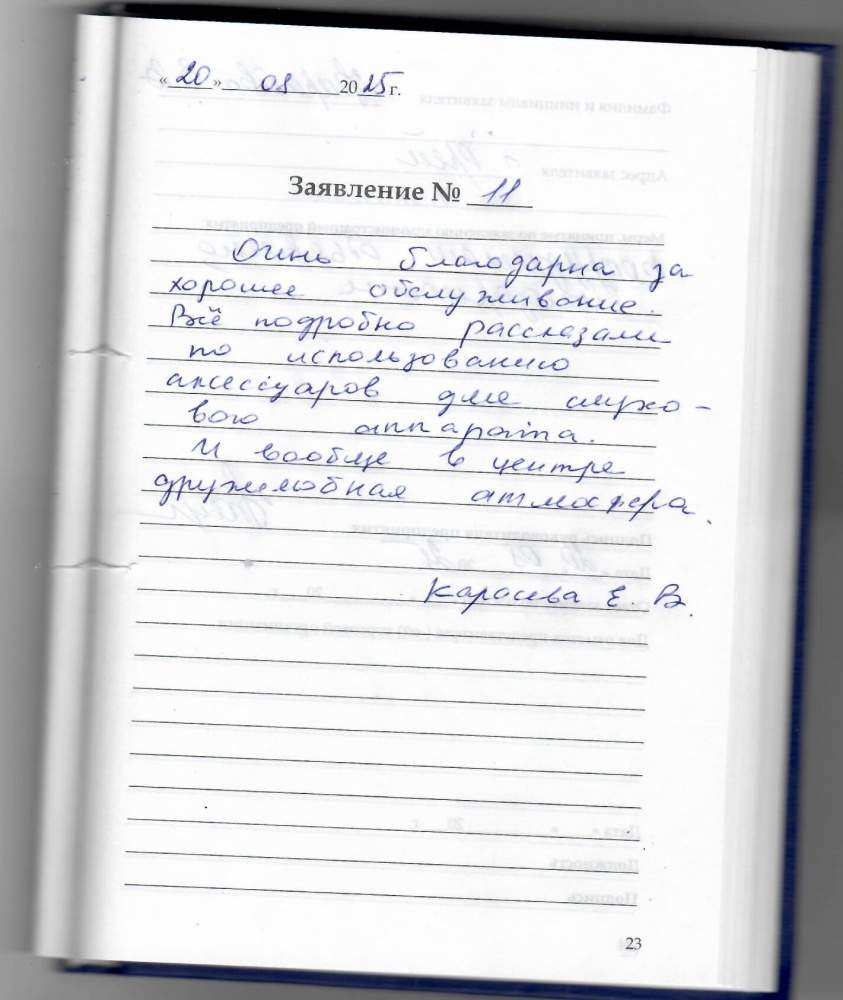 «20» 08 2025 г.
Заявление № 11
Очень благодарна за
хорошее обслуживание.
Всё подробно рассказали
по использованию
аксессуаров для слухо-
вого аппарата.
И вообще в центре
дружелюбная атмосфера.
Карасева Е. В.
23